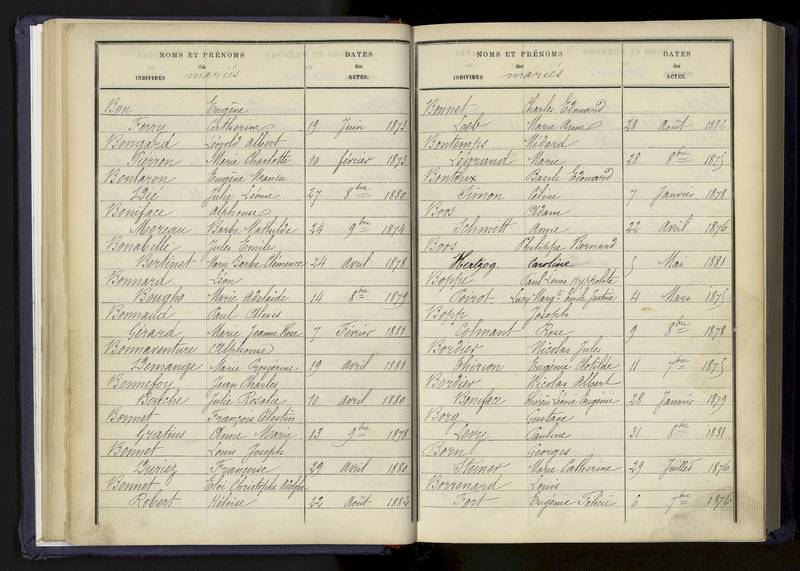 NOMS ET PRÉNOMS DATES
des des
INDIVIDUS mariés ACTES.
Bon Eugène
Ferry Catherine 19 Juin 1873
Bongard Léopold Albert
Pierron Marie Charlotte 10 février 1873
Bontaron Eugène
Dié Julie Léonie 27 8bre 1880
Boniface Alphonse
Moreau Barbe Mathilde 24 9bre 1874
Bonabelle Jules Emile
Bertinet Marie Barbe Clémence 24 avril 1878
Bonnard Léon
Bougho Marie Adelaide 14 8bre 1879
Bonnaud Paul Alexis
Gérard Marie Jeanne Rose 7 Février 1881
Bonnaventure Alphonse
Demange Marie 19 avril 1881
Bonnefoy Jean Charles
Bouche Julie Rosalie 10 avril 1880
Bonnet François Célestin
Gratius Anne Marie 13 9bre 1878
Bonnet Louis Joseph
Duriez Françoise 29 avril 1880
Bonnet Eloi Christophe Adolphe
Robert Héloïse 22 août 1882
NOMS ET PRÉNOMS DATES
des des
INDIVIDUS mariés ACTES.
Bonnet Charles Edouard
Loeb Marie Anne 28 août 1882
Bontemps Médard
Légrand Marie 28 8bre 1875
Bontoux Basile Edouard
Simon Céline 7 Janvier 1878
Boos Adam
Schmitt Anne 22 avril 1876
Boos Philippe Bernard
Hertzog Caroline 5 Mai 1881
Boppe Paul Louis Hyppolite
Poirot Lucy Mary Emilie Justine 4 Mars 1875
Bopp Joseph
Rose 9 8bre 1878
Bordier Nicolas Jules
Thirion Eugénie Clotilde 11 7bre 1875
Bordier Nicolas Albert
Boniface Léonie Eugénie 28 Janvier 1879
Borg Gustave
Levy Pauline 31 8bre 1881
Born Georges
Steiner Marie Catherine 29 Juillet 1876
Borrenard Louis
Fort Eugénie 6 7bre 1876